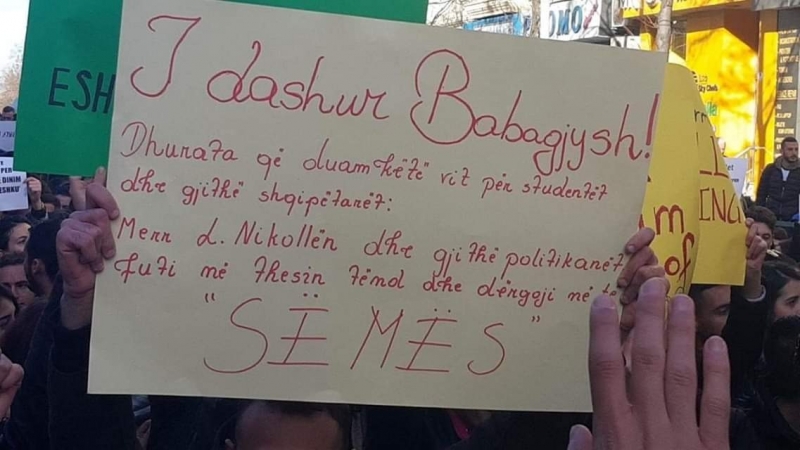 I dashur Babagjysh!
Dhurata që duam këtë vit për studentët
dhe gjithë shqipëtarët:
Merr L. Nikollën dhe gjithë politikanët
futi në thesin tënd dhe dërgoji në
"SË MËS"
ESH
DINIM
ING
of